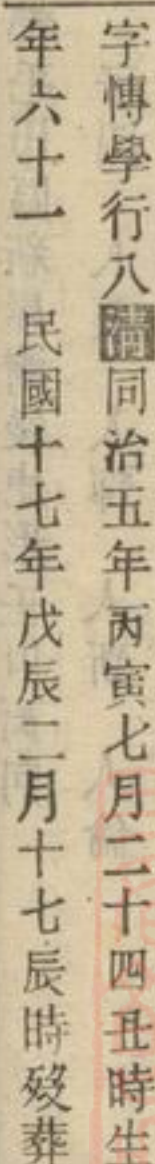 字傳學行八清同治五年丙寅七月二十四丑時生
年六十一　民國十七年戊辰二月十七辰時歿葬